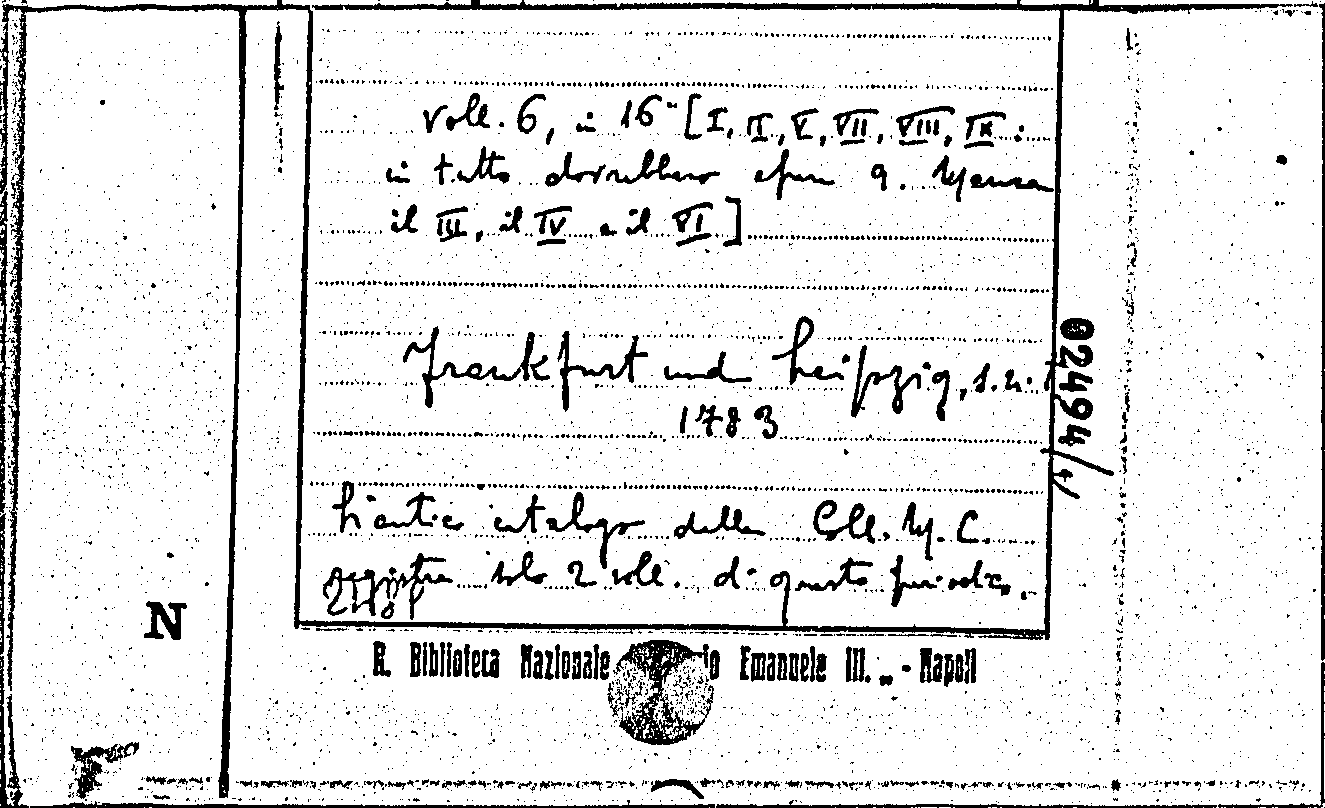 voll. 6, in 16° [I, II, V, VII, VIII, IX:
in tutto dovrebbero essere 9. Mancano
il III, il IV e il VI]
Frankfurt und Leipzig, s. n. t.
1783
L'antico catalogo della Coll. M. C.
registra solo 2 voll. di questo periodico.
02494/4
N
R. Biblioteca Nazionale Emanuele III. „ - Napoli